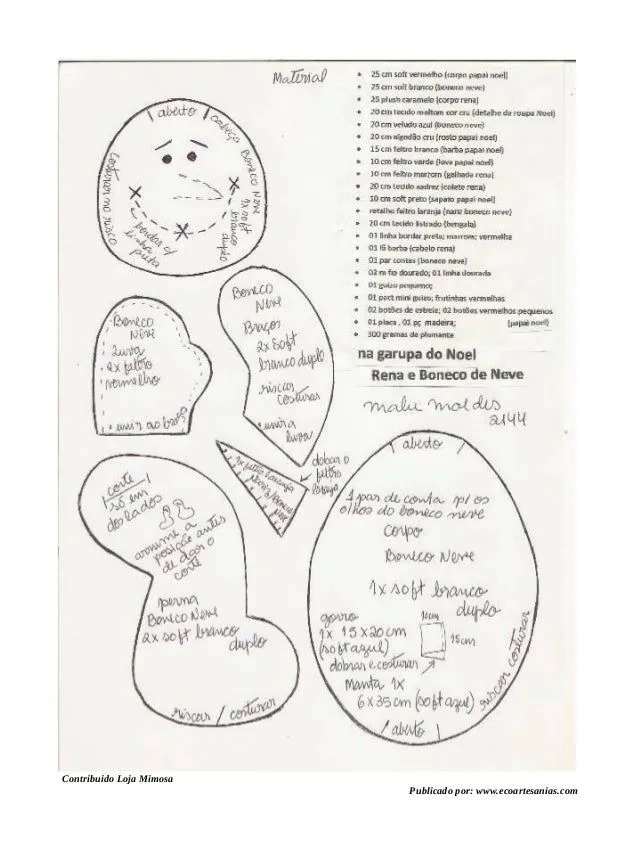 Material
25 cm soft vermelho (corpo papai noel)
25 cm soft branco (boneco neve)
25 plush caramelo (corpo rena)
20 cm tecido meltom cor cru (detalhe da roupa Noel)
20 cm veludo azul (boneco neve)
20 cm algodão cru (rosto papai noel)
15 cm feltro branco (barba papai noel)
10 cm feltro verde (luva papai noel)
10 cm feltro marrom (galhada rena)
20 cm tecido xadrez (colete rena)
10 cm soft preto (sapato papai noel)
retalho feltro laranja (nariz boneco neve)
20 cm tecido listrado (bengala)
01 linha bordar preta; marrom; vermelha
01 lã barba (cabelo rena)
01 par contas (boneco neve)
02 m fio dourado; 01 linha dourada
01 guizo pequeno;
01 pact mini guizo; frutinhas vermelhas
02 botões de estrela; 02 botões vermelhos pequenos
01 placa , 01 pç madeira; (papai noel)
300 gramas de plumante
na garupa do Noel
Rena e Boneco de Neve
malu moldes
2144
aberto
cabeça Boneco Neve
1x soft
branco
duplo
bordar c/
linha
preta
Boneco
Neve
Luva
2x feltro
vermelho
unir ao braço
Boneco
Neve
Braços
2x soft
branco duplo
riscar
costurar
unir a
luva
1x feltro laranja
Nariz/Boneco
Neve
dobar o
feltro
laranja
corte
só em
dos lados
arrume a
posição antes
de dar o
corte
perna
Boneco Neve
2x soft branco
duplo
riscar / costurar
aberto
1 par de conta p/ os
olhos do boneco neve
Corpo
Boneco Neve
1x soft branco
duplo
gorro
1x 15x20cm
(soft azul)
dobrar e costurar
10cm
15cm
Manta 1x
6x35cm (soft azul)
riscar costurar
aberto
Contribuido Loja Mimosa
Publicado por: www.ecoartesanias.com